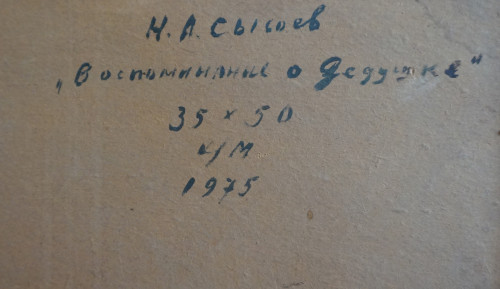 Н.А.Сысоев
„Воспоминание о Дедушке"
35 x 50
к/м
1975